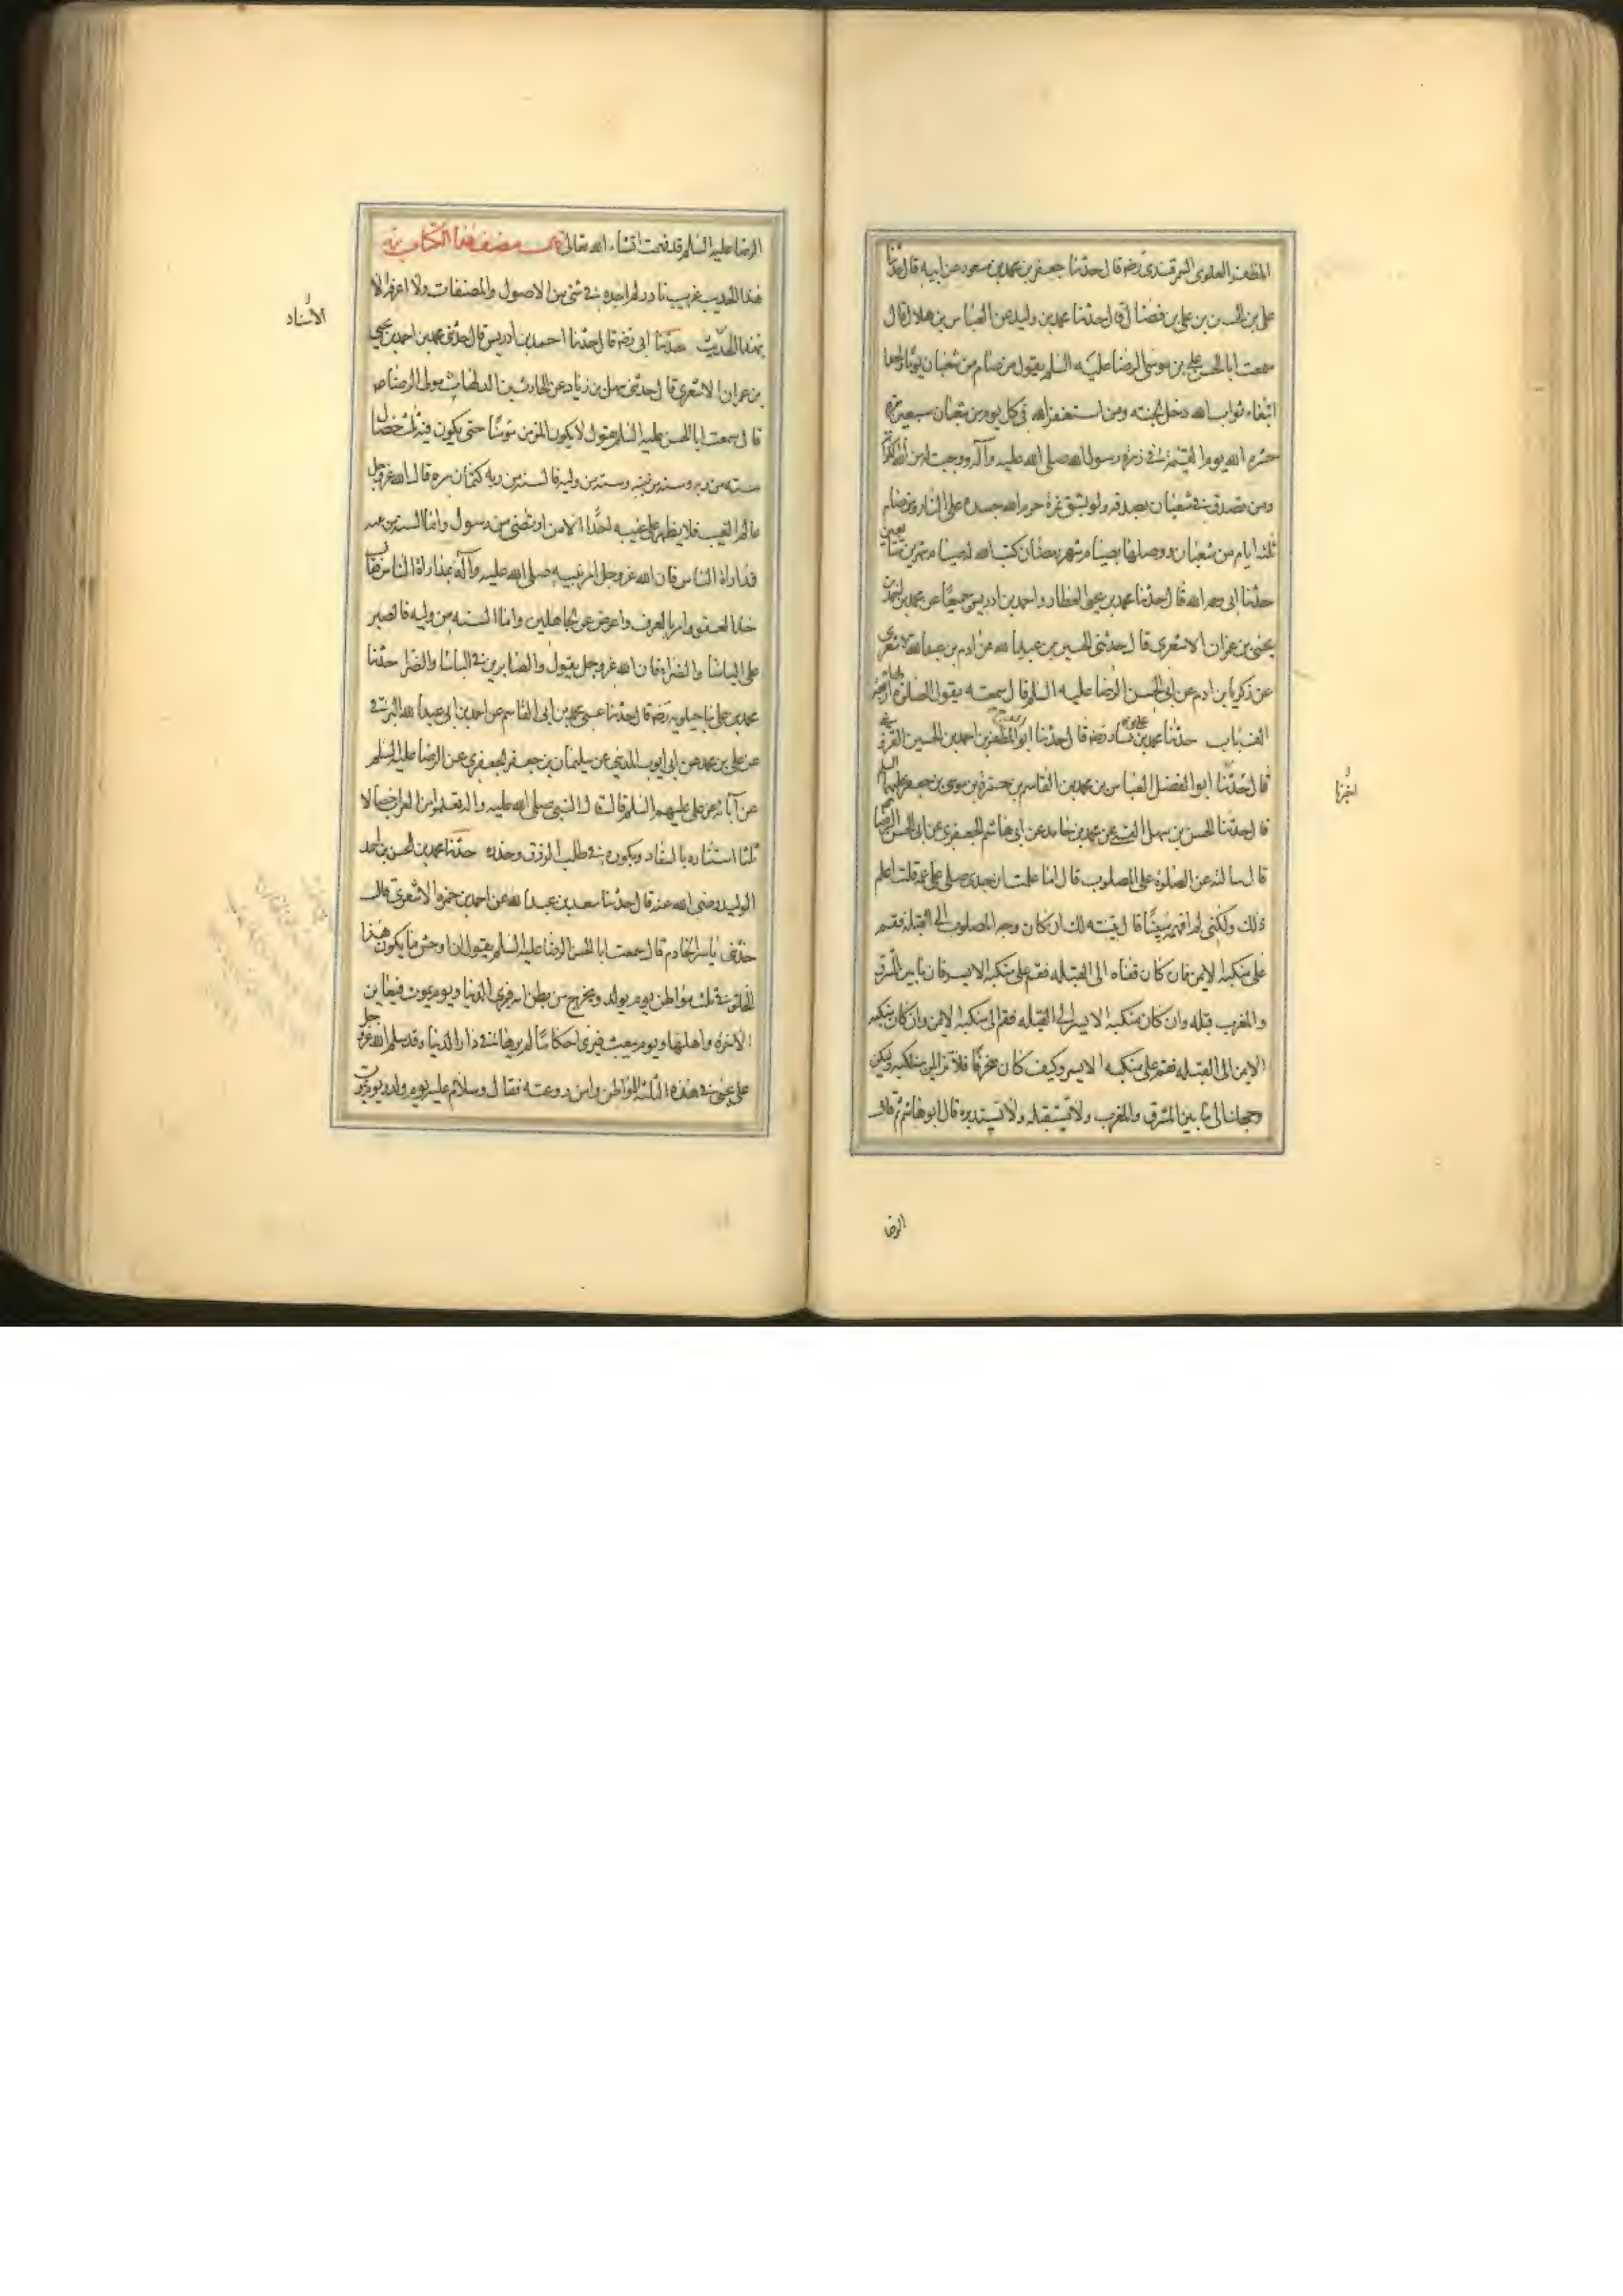 المظفر العلوي السمرقندي رضه قال حدثنا جعفر بن محمد بن مسعود عن ابيه قال حدثنا
علي بن الحسن بن علي بن فضال قال حدثنا محمد بن وليد عن العباس بن هلال قال
سمعت ابا الحسن علي بن موسى الرضا عليه السلم يقول من صام من شعبان يوما واحدا
ابتغاء ثواب الله دخل الجنة ومن استغفر الله في كل يوم من شعبان سبعين مرة
حشره الله يوم القيمة في زمرة رسول الله صلى الله عليه وآله ووجبت له من الله الكرامة
ومن تصدق في شعبان بصدقة ولو بشق تمرة حرم الله جسده على النار ومن صام
ثلثة ايام من شعبان ووصلها بصيام شهر رمضان كتب الله له صيام شهرين متتابعين
حدثنا ابي رحمه الله قال حدثنا محمد بن يحيى العطار واحمد بن ادريس جميعا عن محمد بن احمد بن
يحيى بن عمران الاشعري قال حدثني الحسين بن عبيد الله عن آدم بن عبد الله الاشعري
عن زكريا بن آدم عن ابي الحسن الرضا عليه السلم قال سمعته يقول الصلوة لها اربعة
الف باب حدثنا محمد بن علي بن بشار رضه قال حدثنا ابو المظفر بن احمد بن الحسين القزويني
قال حدثنا ابو الفضل العباس بن محمد بن القاسم بن حمزة بن موسى بن جعفر عليهما السلم
قال حدثنا الحسن بن سهل القمي عن محمد بن حامد عن ابي هاشم الجعفري عن ابي الحسن الرضا
قال سالته عن الصلوة على المصلوب قال اما علمت ان جدي صلى على عمه قلت اعلم
ذلك ولكني لم افهمه مبينا قال ابينه لك ان كان وجه المصلوب الى القبلة فقم
على منكبه الايمن فان كان قفاه الى القبله فقم على منكبه الايسر فان ما بين المشرق
والمغرب قبله وان كان منكبه الايسر الى القبله فقم الى منكبه الايمن وان كان منكبه
الايمن الى القبله فقم على منكبه الايسر وكيف كان منحرفا فلا تزايلن منكبه وليكن
وجهك الى ما بين المشرق والمغرب ولا تستقبله ولا تستدبره قال ابو هاشم ثم قال
الرضا
الرضا عليه السلم قد فهمت انشاء الله تعالى قال مصنف هذا الكتاب ره
هذا الحديث غريب نادر لم اجده في شيء من الاصول والمصنفات ولا اعرفه الا
بهذا الحديث حدثنا ابي رضه قال حدثنا احمد بن ادريس قال حدثني محمد بن احمد بن يحيى
الاسناد
بن عمران الاشعري قال حدثني سهل بن زياد عن الحارث بن الدلهاث مولى الرضا عه
قال سمعت ابا الحسن عليه السلم يقول لا يكون المؤمن مؤمنا حتى يكون فيه ثلث خصال
سنة من ربه وسنة من نبيه وسنة من وليه فالسنة من ربه كتمان سره قال الله عز وجل
عالم الغيب فلا يظهر على غيبه احدا الا من ارتضى من رسول واما السنة من نبيه
فمداراة الناس فان الله عز وجل امر نبيه صلى الله عليه وآله بمداراة الناس فقال
خذ العفو وامر بالعرف واعرض عن الجاهلين واما السنه من وليه فالصبر
على الباساء والضراء فان الله عز وجل يقول والصابرين في الباساء والضراء حدثنا
محمد بن علي ماجيلويه رضه قال حدثنا عمي محمد بن ابي القاسم عن احمد بن ابي عبد الله البرقي
عن علي بن محمد عن ابي ايوب المديني عن سليمان بن جعفر الجعفري عن الرضا عليه السلم
عن آبائه عن علي عليهم السلم قال قال النبي صلى الله عليه وآله تعلموا من الغراب خصالا
ثلثا استتاره بالسفاد وبكوره في طلب الرزق وحذره حدثنا محمد بن الحسن بن احمد
الوليد رضي الله عنه قال حدثنا سعد بن عبد الله عن احمد بن حمزة الاشعري قال
حدثني ياسر الخادم قال سمعت ابا الحسن الرضا عليه السلم يقول ان اوحش ما يكون هذا
الخلق في ثلث مواطن يوم يولد ويخرج من بطن امه فيرى الدنيا ويوم يموت فيعاين
الآخرة واهلها ويوم يبعث فيرى احكاما لم يرها في دار الدنيا وقد سلم الله عز وجل
على يحيى في هذه الثلثة المواطن وامن روعته فقال وسلام عليه يوم ولد ويوم يموت